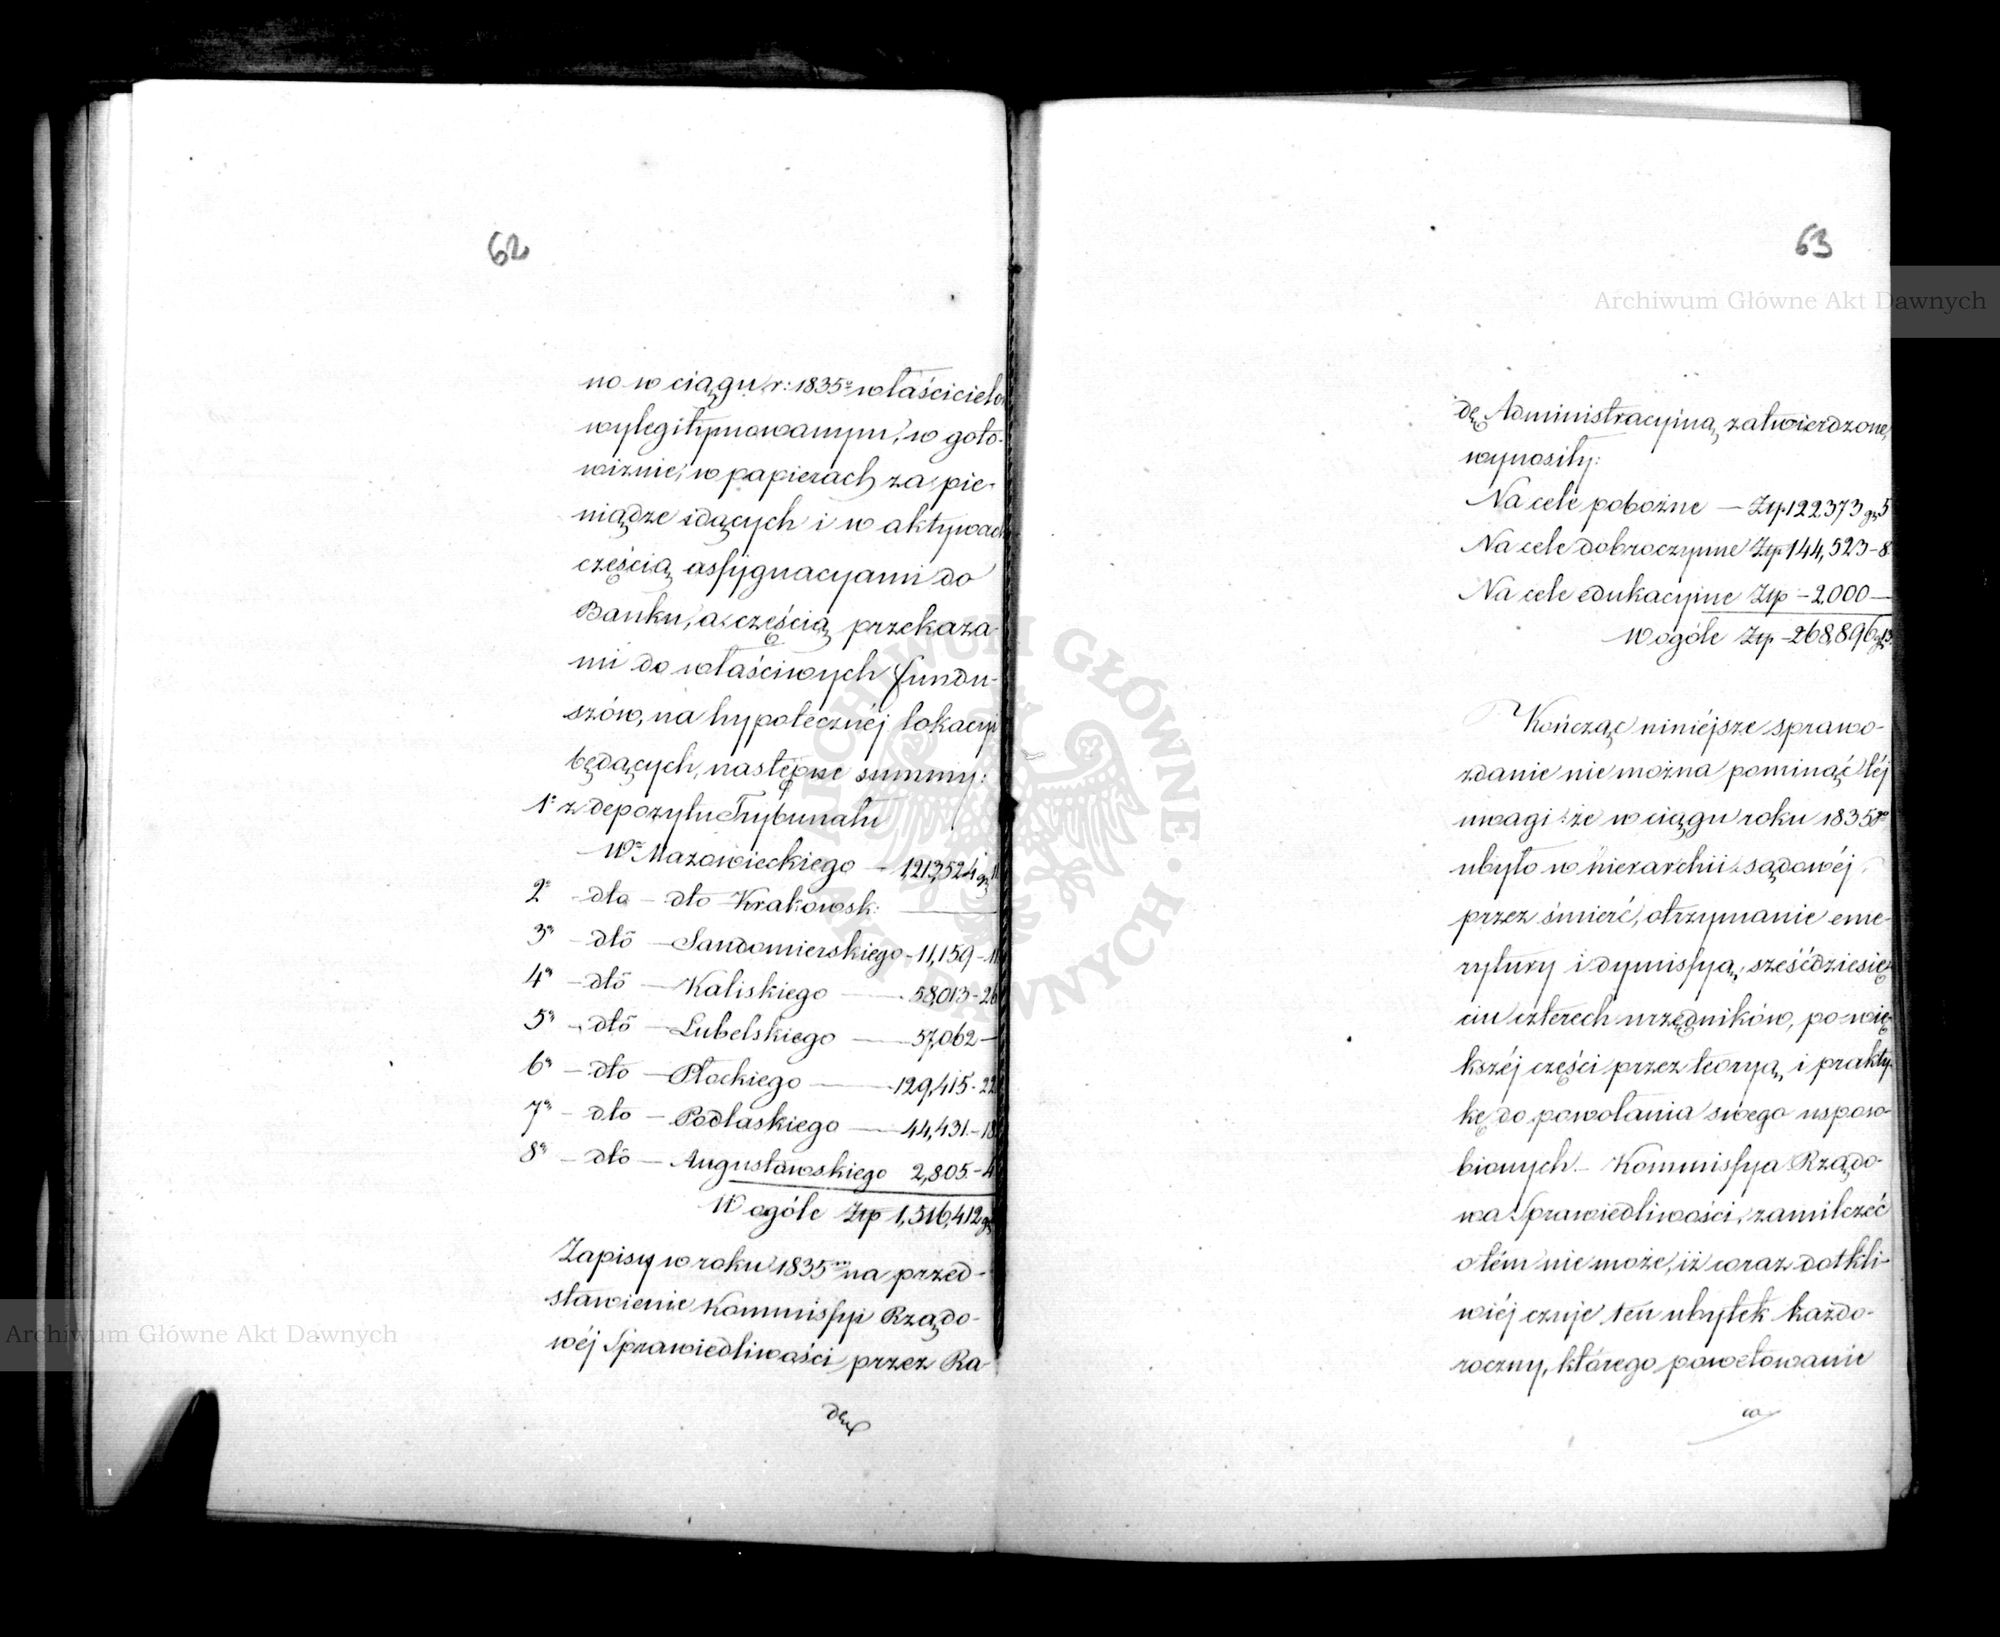 62
no w ciągu r: 1835º właścicielom
wylegitymowanym, w goto-
wiznie, w papierach za pie-
niądze idących i w aktywach
częścią assygnacyami do
Banku, a częścią przekaza-
mi do właściwych fundu-
szów, na hypotecznéj lokacyi
będących, następne summy:
1º z depozytu Trybunału
Wª Mazowieckiego — 1,213,524 gr 11
2º — dto — dto Krakowsk: —
3º — dtô — Sandomierskiego - 11,159 - 11
4º — dtô — Kaliskiego — 58,013 - 26
5º — dtô — Lubelskiego — 57,062 —
6º — dto — Płockiego — 129,415 - 22
7º — dto — Podlaskiego — 44,431 - 18
8º — dtô — Augustowskiego 2,805 - 4
W ogóle Złp 1,516,412 gr
Zapisy w roku 1835ᵐ na przed-
stawienie Kommissyi Rządo-
wéj Sprawiedliwości przez Ra-
dę
63
dę Administracyjną zatwierdzone,
wynosiły:
Na cele pobożne — Złp 122373 gr 5
Na cele dobroczynne Złp 144,523 - 8
Na cele edukacyjne Złp - 2,000 —
W ogóle Złp - 268,896 gr 13
Kończąc niniéjsze sprawo-
zdanie nie można pominąć téj
uwagi: że w ciągu roku 1835go
ubyło w hierarchii sądowéj,
przez śmierć, otrzymanie eme-
rytury i dymissyą, sześćdziesię-
ciu czterech urzędników, po wię-
kszéj części przez teoryą i prakty-
kę do powołania swego usposo-
bionych — Kommissya Rządo-
wa Sprawiedliwości, zamilczeć
o tém nie może, iż coraz dotkli-
wiéj czuje ten ubytek każdo-
roczny, którego powetowanie
co
Archiwum Główne Akt Dawnych
Archiwum Główne Akt Dawnych
ARCHIWUM GŁÓWNE AKT DAWNYCH